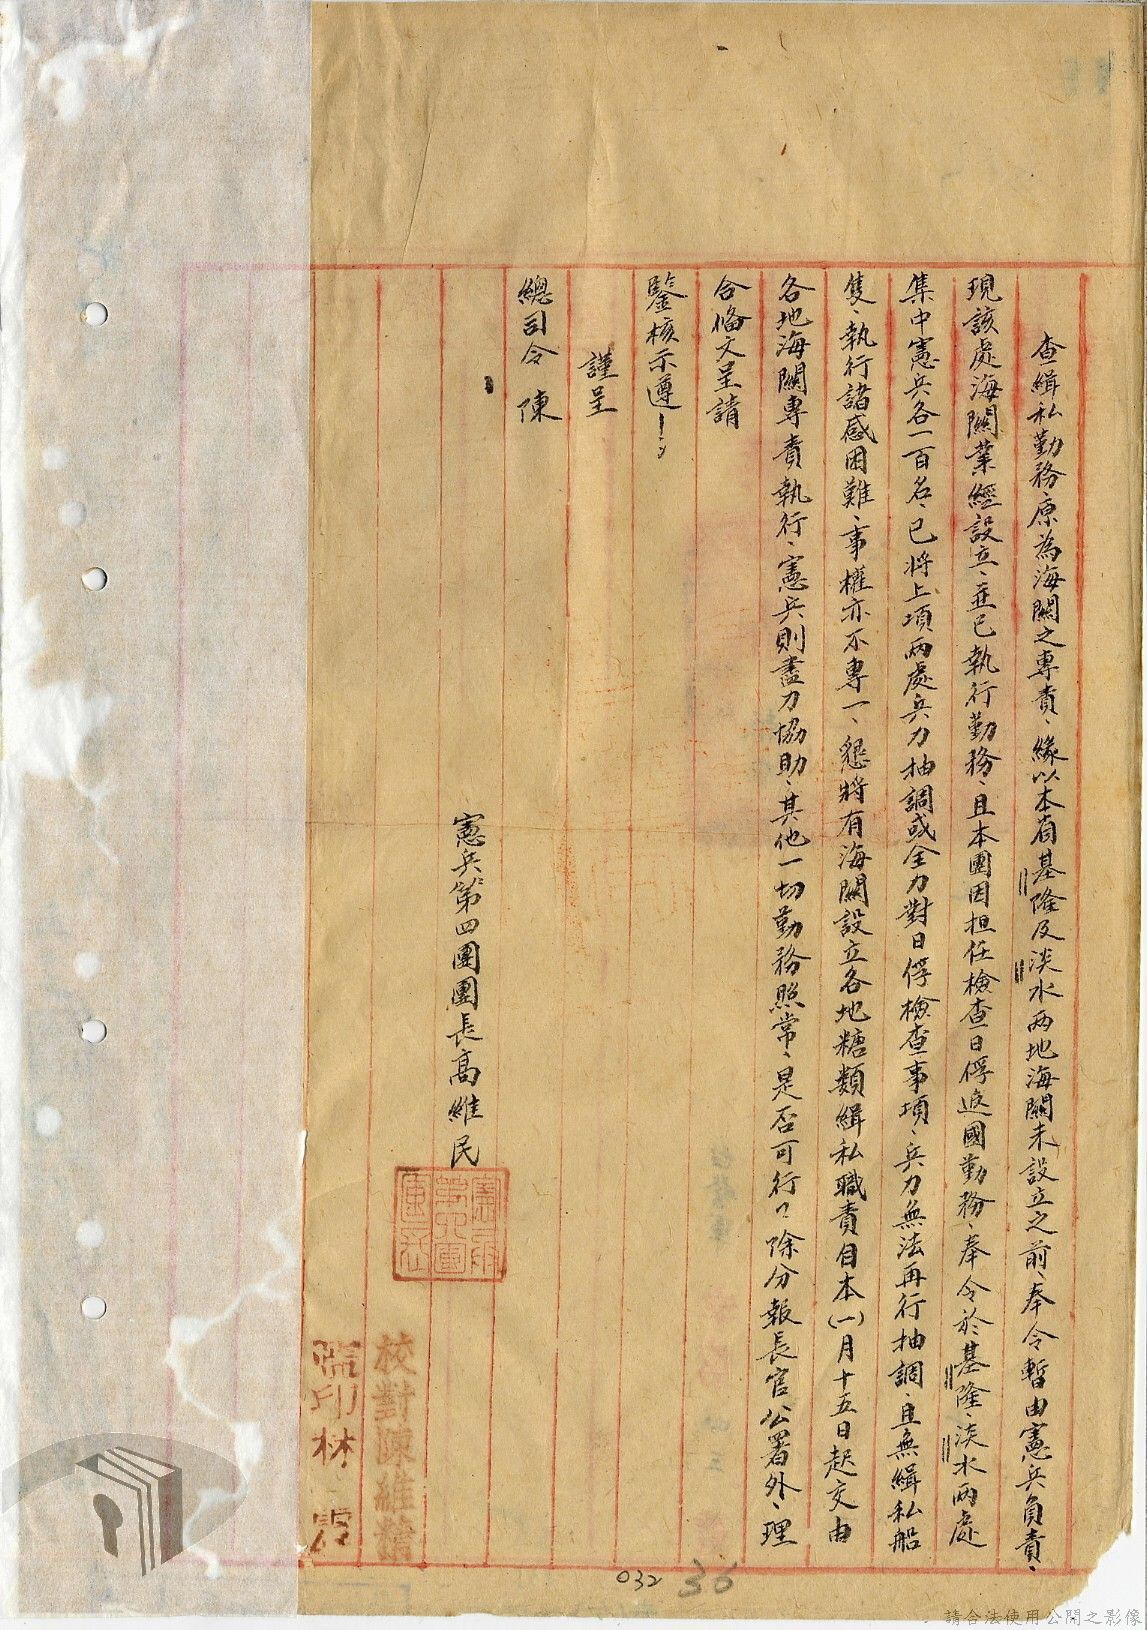 查緝私勤務、原為海關之專責、緣以本省基隆及淡水兩地海關未設立之前、奉令暫由憲兵負責、
現該處海關業經設立、並已執行勤務、且本團因担任檢查日俘遣國勤務、奉令於基隆、淡水兩處
集中憲兵各一百名、已將上項兩處兵力抽調或全力對日俘檢查事項、兵力無法再行抽調、且無緝私船
隻、執行諸感困難、事權亦不專一、懇將有海關設立各地糖類緝私職責自本(一)月十五日起交由
各地海關專責執行、憲兵則盡力協助、其他一切勤務照常、是否可行?除分報長官公署外、理
合備文呈請
鑒核示遵!
謹呈
總司令 陳
憲兵第四團團長高維民
校對陳維
監印林 霞
032 36
請合法使用公開之影像